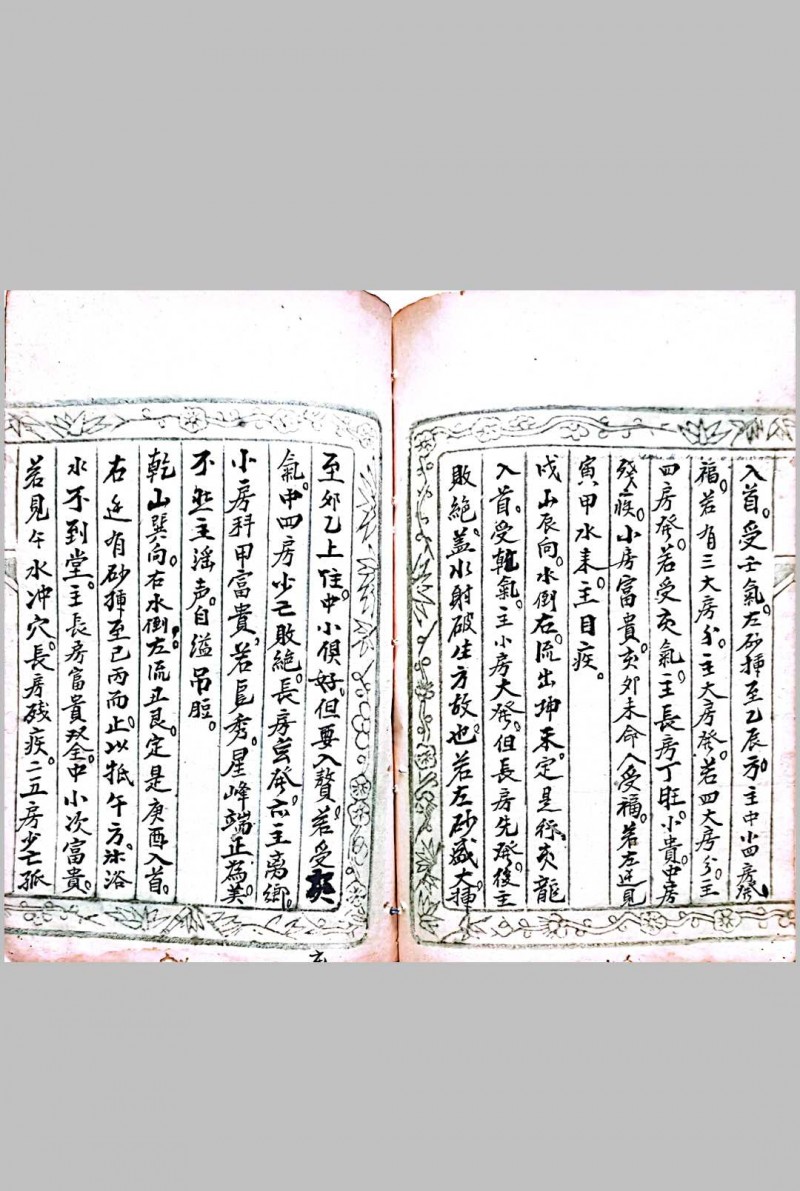 入首。受壬氣。左砂揷至乙辰方。主中小四房發
福。若有三大房分。主大房發。若四大房分。主
四房發。若受亥氣。主長房丁旺。小貴。中房
殘疾。小房富貴。亥夘未命人受福。若左辺見
寅甲水来。主目疾。
戌山辰向。水倒右。流出坤未。定是行亥龍
入首。受乾氣。主小房大發。但長房先發。後主
敗絶。盖水射破生方故也。若左砂盛大揷
至夘乙上住。中小俱好。但要入贅。若受
氣。中四房少亡敗絶。長房亥發。亦主离鄉。
小房拜甲富貴。若艮秀。星峰端正為美。
不然主滛声。自縊吊脰。
乾山巽向。右水倒左流丑艮。定是庚酉入首。
右辺有砂揷至巳丙而止。以抵午方。沐浴
水不到堂。主長房富貴双全。中小次富貴。
若見午水冲穴。長房残疾。二五房少亡孤